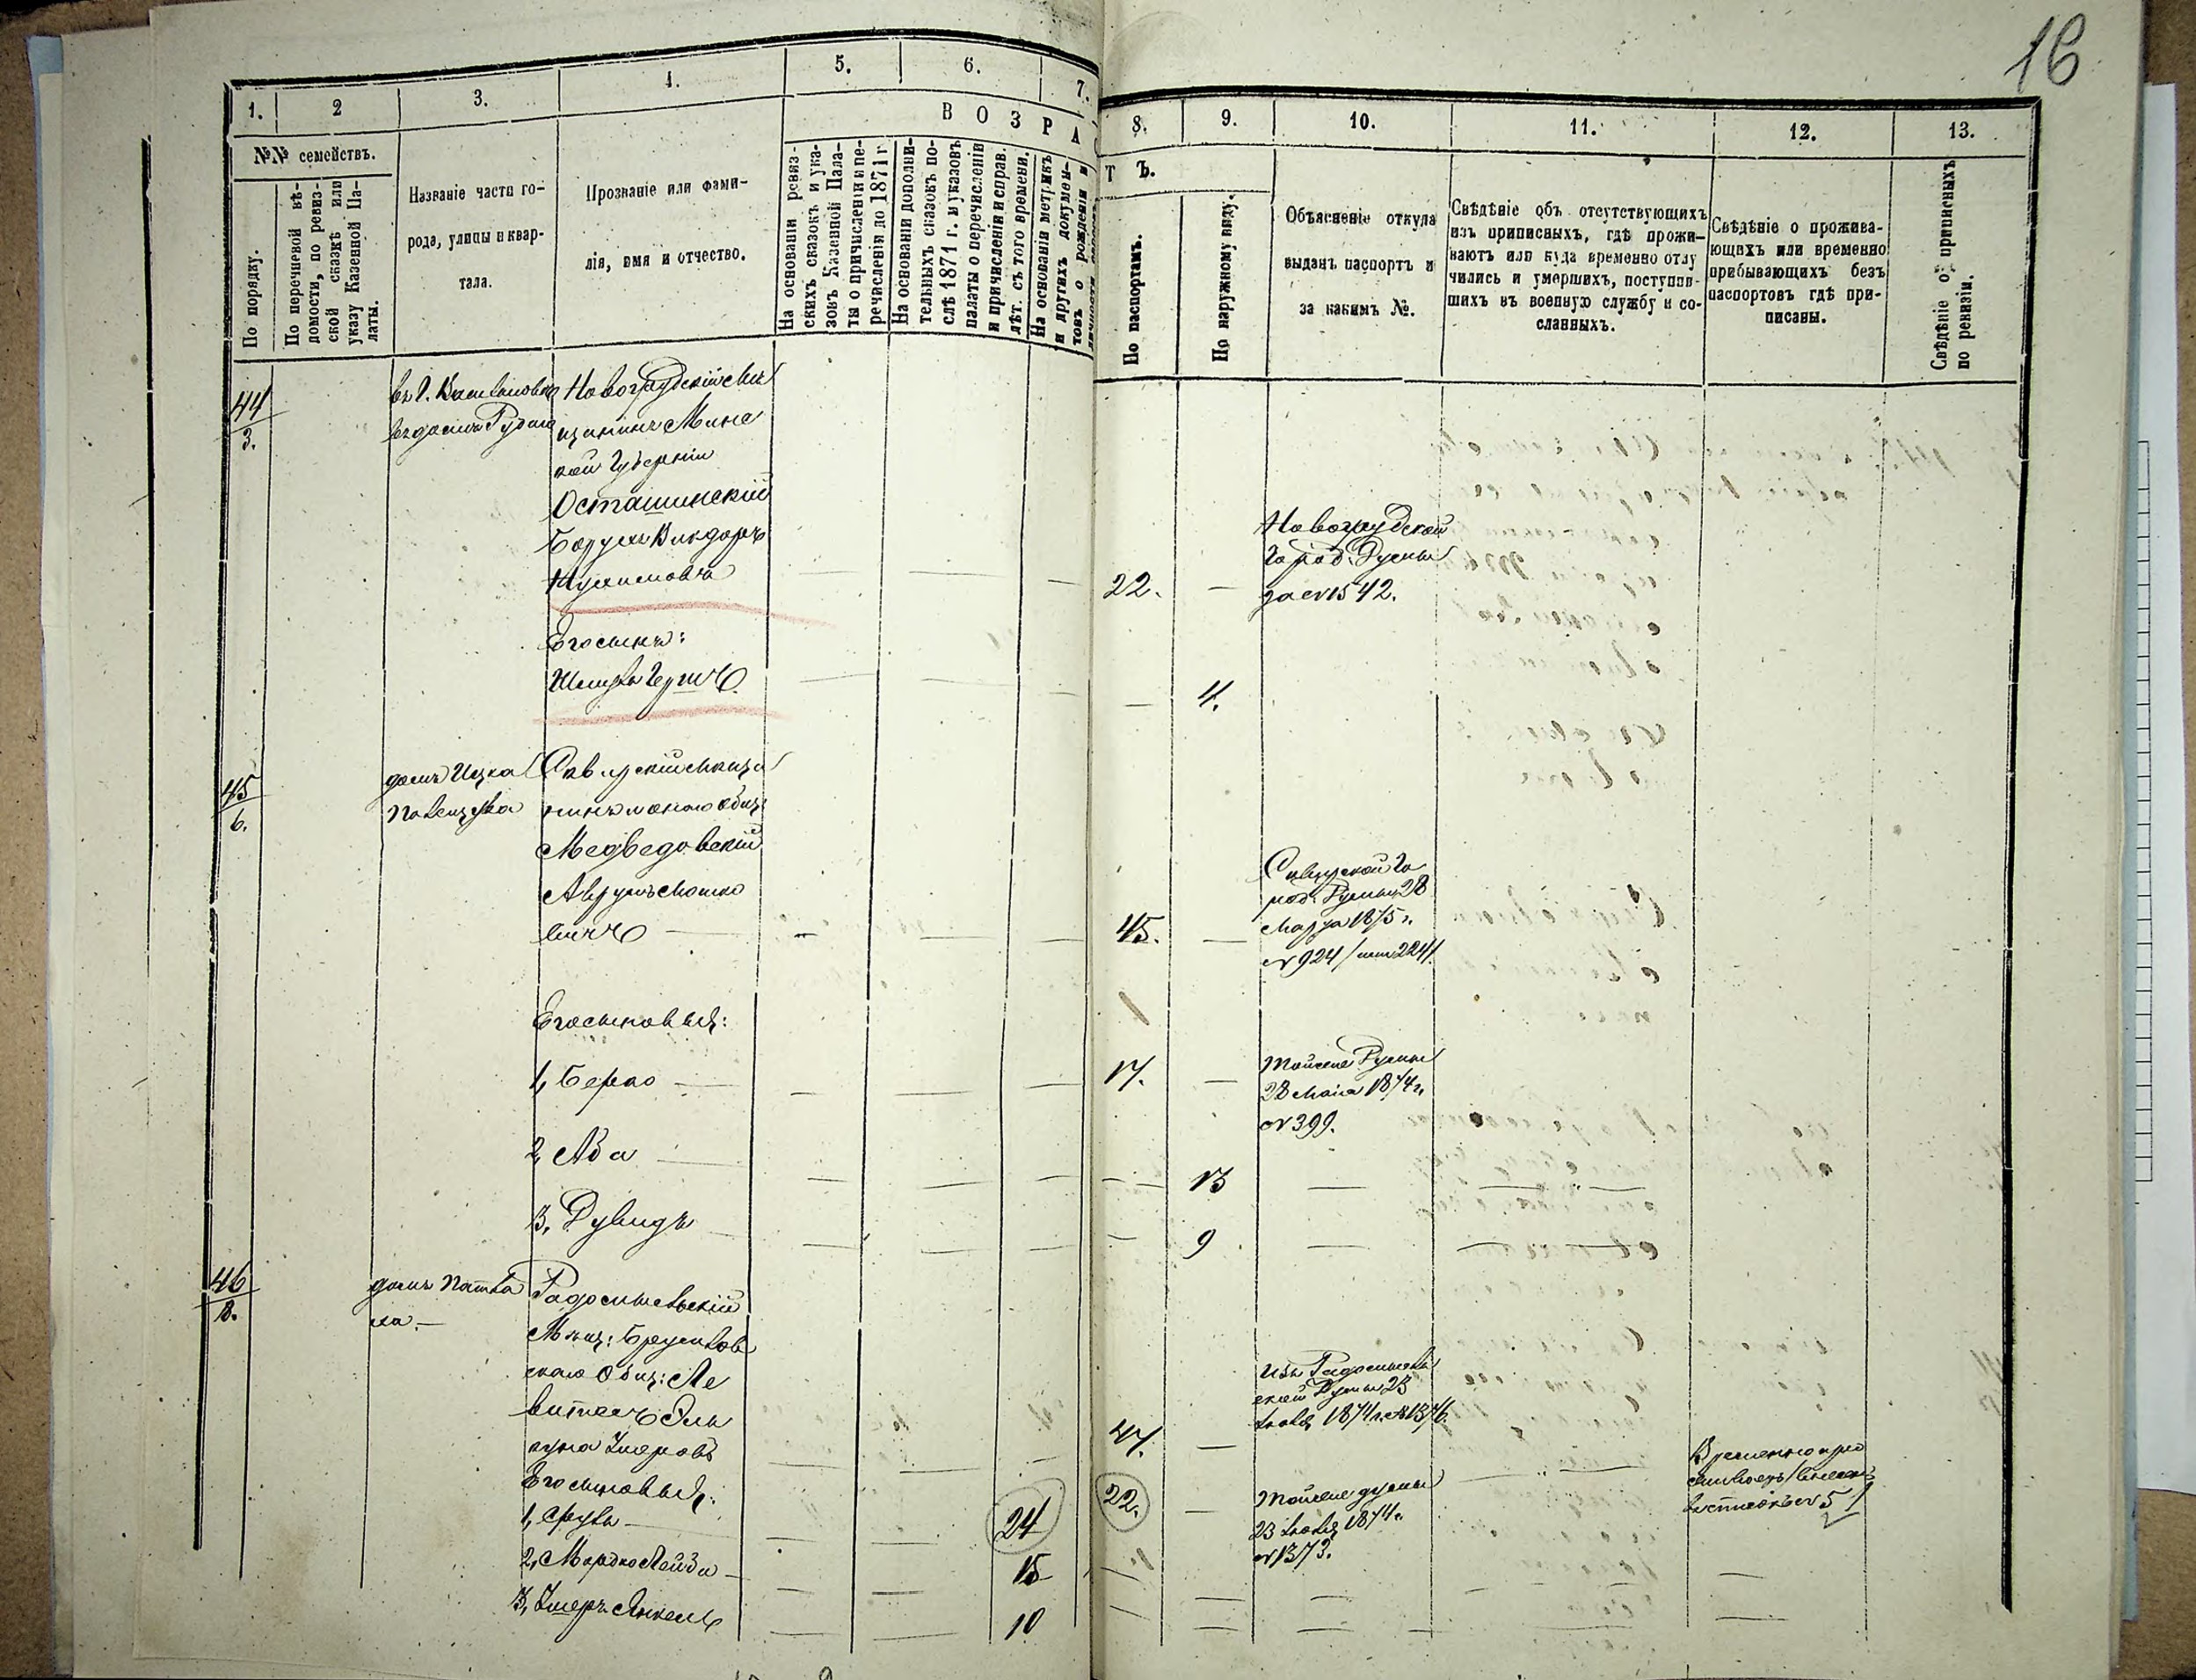 16
1.
2
3.
4.
5.
6.
7.
8.
9.
10.
11.
12.
13.
В О З Р А
Т Ъ.
№№ семействъ.
По порядку.
По перечневой вѣ-
домости, по ревиз-
ской сказкѣ или
указу Казенной Па-
латы.
Названіе части го-
рода, улицы и квар-
тала.
Прозваніе или фами-
лія, имя и отчество.
На основаніи ревиз-
скихъ сказокъ и ука-
зовъ Казенной Пала-
ты о причисленіи и пе-
речисленіи до 1871 г.
На основаніи дополни-
тельныхъ сказокъ по-
слѣ 1871 г. и указовъ
палаты о перечисленіи
и причисленіи и справ.
лѣт. съ того времени.
На основаніи метрикъ
и другихъ докумен-
товъ о рожденіи и
По паспортамъ.
По наружному виду.
Объясненіе откуда
выданъ паспортъ и
за какимъ №.
Свѣдѣніе объ отсутствующихъ
изъ приписныхъ, гдѣ прожи-
ваютъ или куда временно отлу
чились и умершихъ, поступив-
шихъ въ военную службу и со-
сланныхъ.
Свѣдѣніе о прожива-
ющихъ или временно
прибывающихъ безъ
паспортовъ гдѣ при-
писаны.
Свѣдѣніе о приписныхъ
по ревизіи.
44
3.
Новогрудскій мѣ
щанинъ Минс
кой Губерніи
Осташинскій
Борухъ Викдоръ
22.
Новогрудской
Город. Думы
за № 542.
Его сынъ:
4.
45
6.
домъ Ицка
Сквирскій мѣща
нинъ
Медведовскій
Аврумъ Мошко
вичъ
45.
Сквирской Го
род. Думы 28
Марта 1875 г.
№ 924
Его сыновья:
1, Берко
17.
Тойже Думы
28 Мая 1874 г.
№ 399.
2, Аба
13
3, Дувидъ
9
46
8.
домъ
Радомысльскій
Мѣщ: Брусилов
скаго Общ: Ле
витесъ Эль
куна Умеровъ
47.
Изъ Радомысль
ской Думы 23
Іюля 1874 г. № 1376.
Его сыновья:
1, Срулъ
24
22.
Тойже думы
23 Іюля 1874 г.
№ 1373.
Временно про
5
2, Мордко Лейзи
15
3, Умеръ Янкель
10